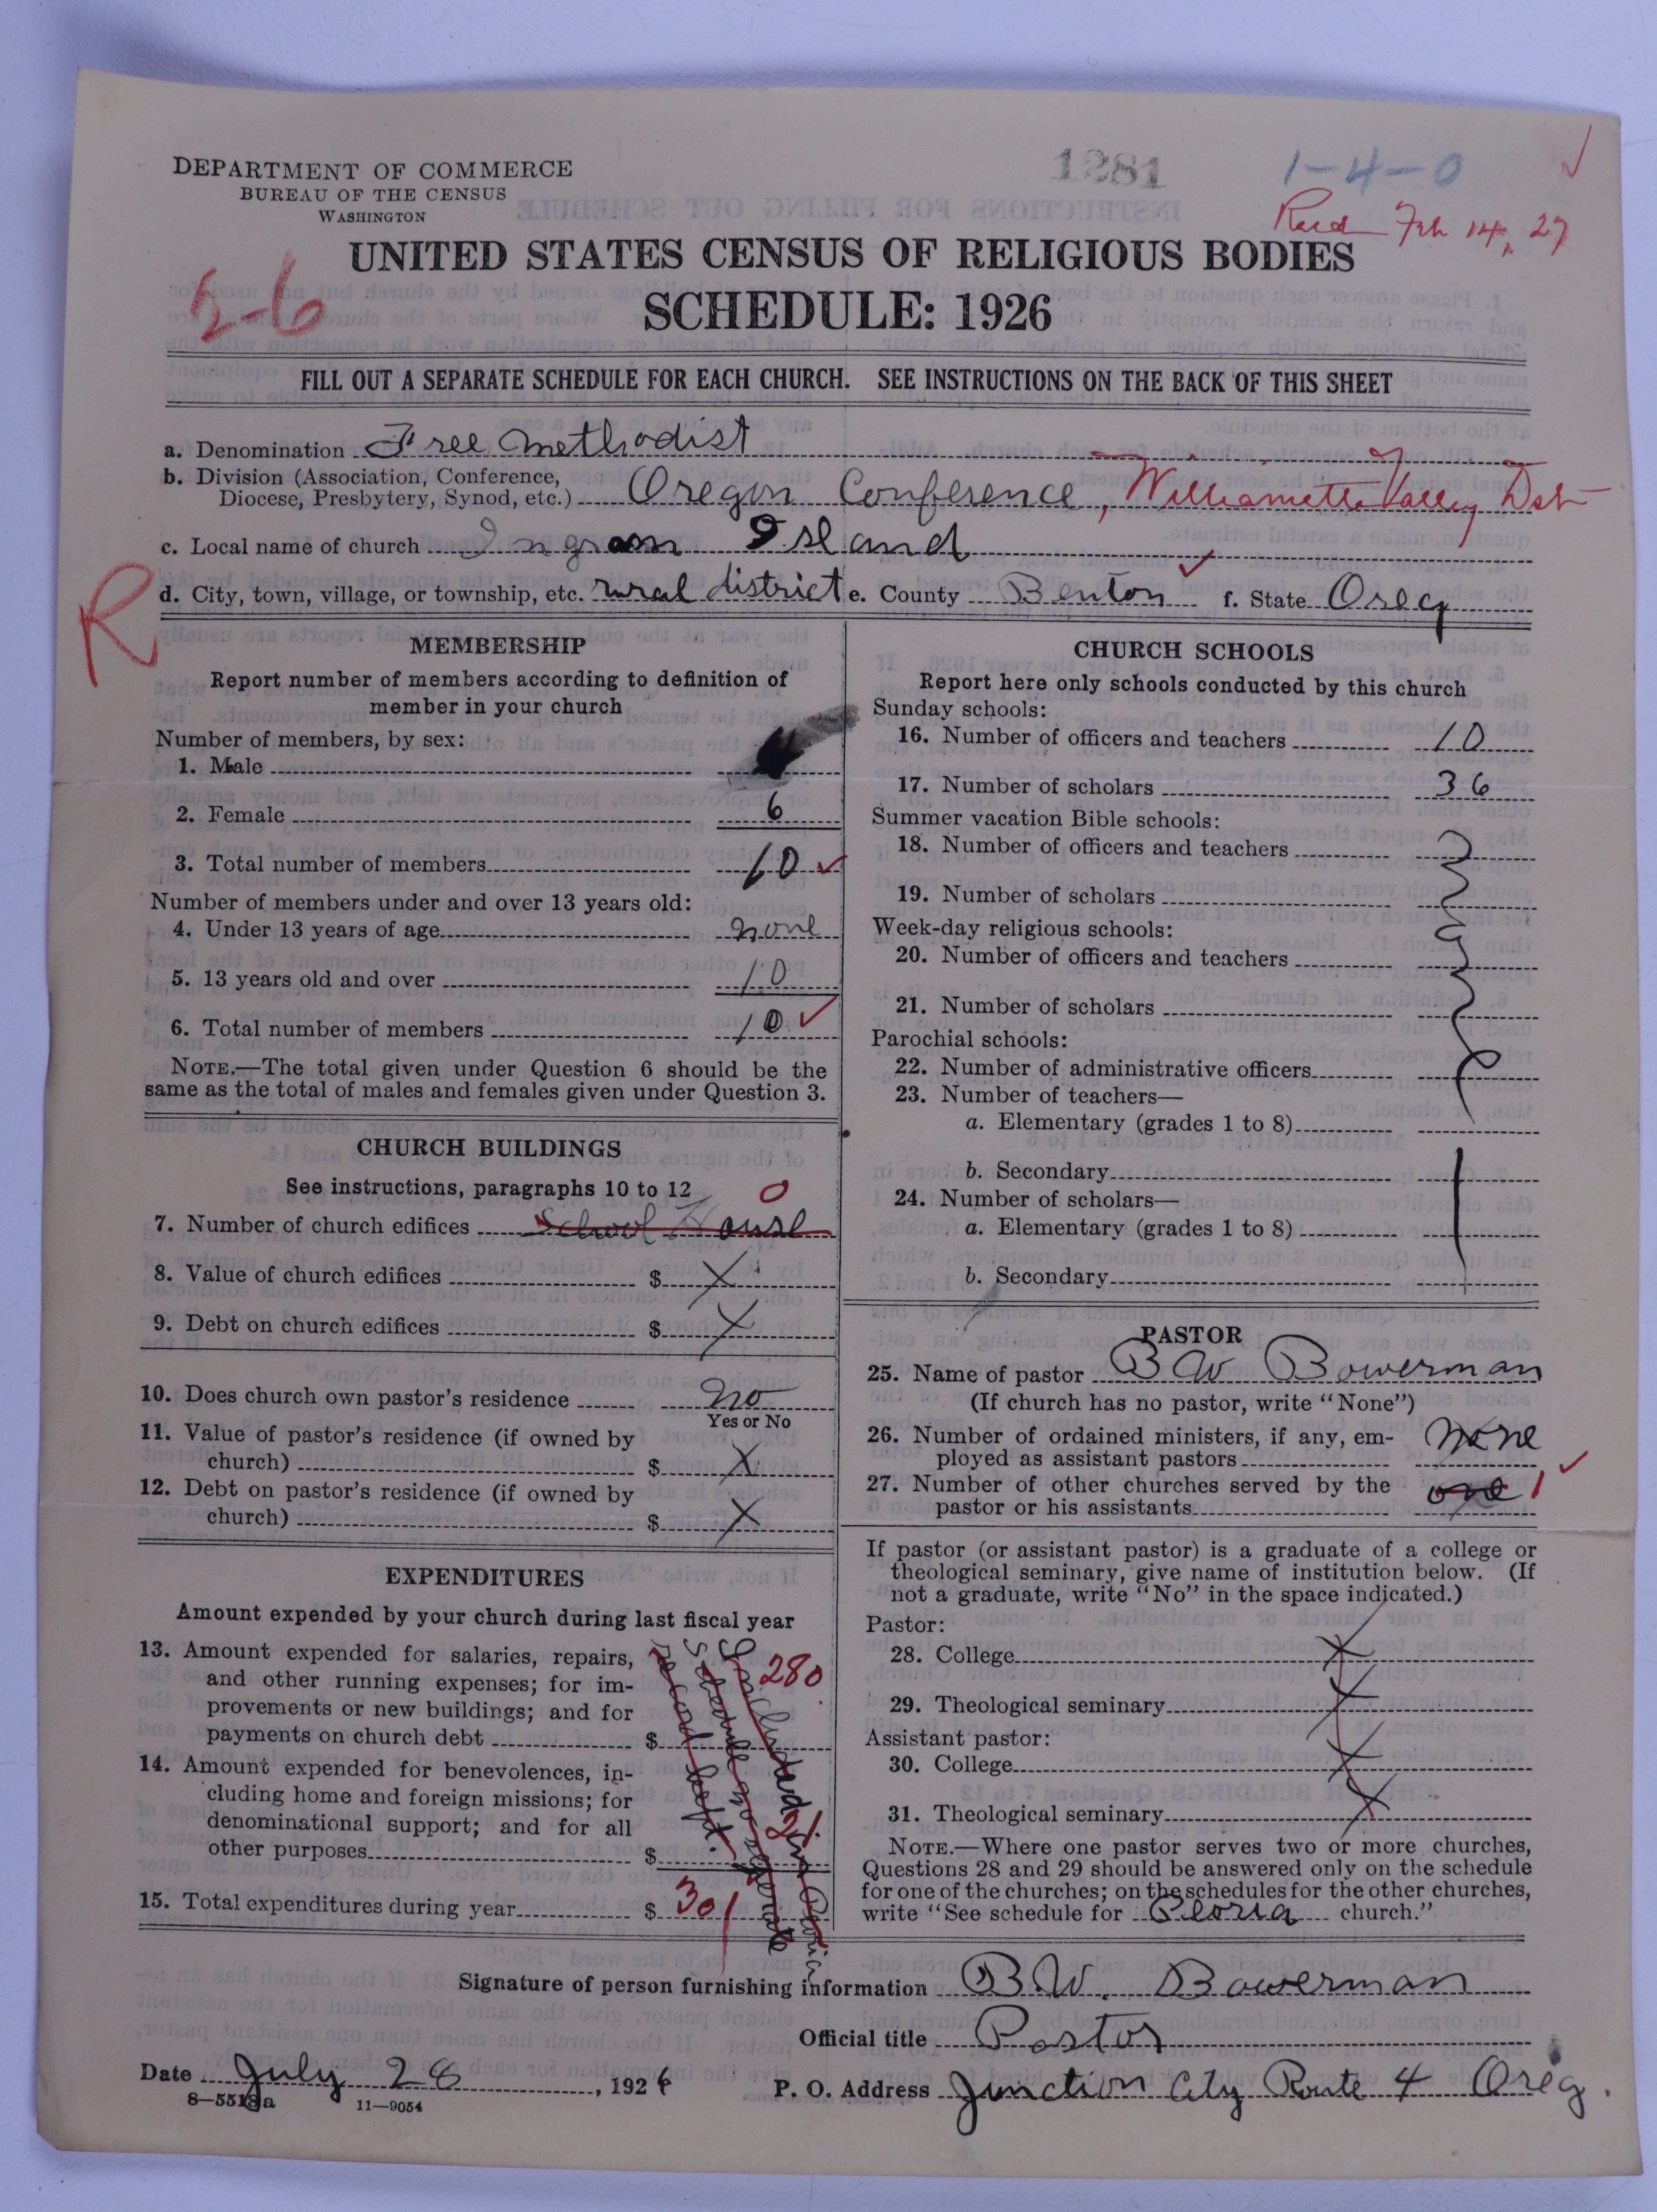 DEPARTMENT OF COMMERCE
BUREAU OF THE CENSUS
WASHINGTON
1281
1-4-0
Recd Feb 14, 27
UNITED STATES CENSUS OF RELIGIOUS BODIES
5-6
SCHEDULE: 1926
FILL OUT A SEPARATE SCHEDULE FOR EACH CHURCH. SEE INSTRUCTIONS ON THE BACK OF THIS SHEET
a. Denomination Free Methodist
b. Division (Association, Conference,
Diocese, Presbytery, Synod, etc.) Oregon Conference, Williamette Valley Dist
c. Local name of church Ingram Island
R
d. City, town, village, or township, etc. rural district e. County Benton f. State Oreg
MEMBERSHIP
Report number of members according to definition of
member in your church
Number of members, by sex:
1. Male
2. Female 6
3. Total number of members 10
Number of members under and over 13 years old:
4. Under 13 years of age none
5. 13 years old and over 10
6. Total number of members 10
NOTE.—The total given under Question 6 should be the
same as the total of males and females given under Question 3.
CHURCH BUILDINGS
See instructions, paragraphs 10 to 12 0
7. Number of church edifices School House
8. Value of church edifices $ X
9. Debt on church edifices $ X
10. Does church own pastor's residence no
Yes or No
11. Value of pastor's residence (if owned by
church) $ X
12. Debt on pastor's residence (if owned by
church) $ X
EXPENDITURES
Amount expended by your church during last fiscal year
13. Amount expended for salaries, repairs,
and other running expenses; for im-
provements or new buildings; and for
payments on church debt $ 280
14. Amount expended for benevolences, in-
cluding home and foreign missions; for
denominational support; and for all
other purposes $ 21
15. Total expenditures during year $ 301
Included in Peoria
Schedule no seperate
record kept.
CHURCH SCHOOLS
Report here only schools conducted by this church
Sunday schools:
16. Number of officers and teachers 10
17. Number of scholars 36
Summer vacation Bible schools:
18. Number of officers and teachers
19. Number of scholars
Week-day religious schools:
20. Number of officers and teachers
21. Number of scholars
Parochial schools:
22. Number of administrative officers
23. Number of teachers—
a. Elementary (grades 1 to 8)
b. Secondary
24. Number of scholars—
a. Elementary (grades 1 to 8)
b. Secondary
PASTOR
25. Name of pastor B W Bowerman
(If church has no pastor, write "None")
26. Number of ordained ministers, if any, em-
ployed as assistant pastors none
27. Number of other churches served by the
pastor or his assistants one 1
If pastor (or assistant pastor) is a graduate of a college or
theological seminary, give name of institution below. (If
not a graduate, write "No" in the space indicated.)
Pastor:
28. College X
29. Theological seminary X
Assistant pastor:
30. College X
31. Theological seminary X
NOTE.—Where one pastor serves two or more churches,
Questions 28 and 29 should be answered only on the schedule
for one of the churches; on the schedules for the other churches,
write "See schedule for Peoria church."
Signature of person furnishing information B.W. Bowerman
Official title Pastor
Date July 28, 1926 P. O. Address Junction City Route 4 Oreg.
8—5518a 11—9054